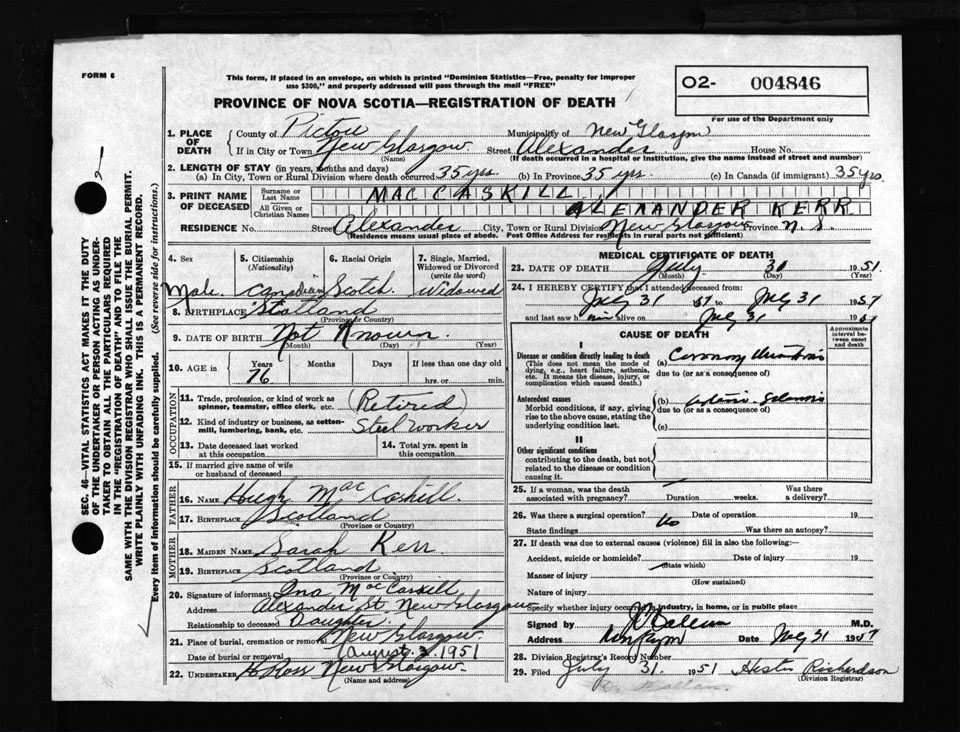 FORM 6
This form, if placed in an envelope, on which is printed "Dominion Statistics—Free, penalty for improper
use $300," and properly addressed will pass through the mail "FREE"
PROVINCE OF NOVA SCOTIA—REGISTRATION OF DEATH
O2- 004846
For use of the Department only
1. PLACE OF DEATH { County of Pictou Municipality of New Glasgow
If in City or Town New Glasgow Street Alexander House No.
(Name) (If death occurred in a hospital or institution, give the name instead of street and number)
2. LENGTH OF STAY (in years, months and days)
(a) In City, Town or Rural Division where death occurred 35 yrs. (b) In Province 35 yrs. (c) In Canada (if immigrant) 35 yrs.
3. PRINT NAME OF DECEASED { Surname or Last Name MAC CASKILL
All Given or Christian Names ALEXANDER KERR
RESIDENCE No. Street Alexander City, Town or Rural Division New Glasgow Province N. S.
(Residence means usual place of abode. Post Office Address for residents in rural parts not sufficient)
4. Sex 5. Citizenship (Nationality) 6. Racial Origin 7. Single, Married, Widowed or Divorced (write the word)
Male Canadian Scotch Widowed
8. BIRTHPLACE Scotland
(Province or Country)
9. DATE OF BIRTH Not Known
(Month) (Day) (Year)
10. AGE in { Years Months Days If less than one day old
76 hrs. or min.
OCCUPATION
11. Trade, profession, or kind of work as spinner, teamster, office clerk, etc. (Retired)
12. Kind of industry or business, as cotton-mill, lumbering, bank, etc. Steel worker
13. Date deceased last worked at this occupation 14. Total yrs. spent in this occupation
15. If married give name of wife or husband of deceased
FATHER
16. NAME Hugh MacCaskill.
17. BIRTHPLACE Scotland
(Province or Country)
MOTHER
18. MAIDEN NAME Sarah Kerr
19. BIRTHPLACE Scotland
(Province or Country)
20. Signature of informant Ina MacCaskill
Address Alexander St. New Glasgow
Relationship to deceased Daughter.
21. Place of burial, cremation or removal New Glasgow
Date of burial or removal August 2, 1951
22. UNDERTAKER Ross New Glasgow.
(Name and address)
MEDICAL CERTIFICATE OF DEATH
23. DATE OF DEATH July 1951
(Month) (Day)
24. I HEREBY CERTIFY that I attended deceased from
July 31 to July 31
and last saw him alive on July 31 19
CAUSE OF DEATH
Approximate interval between onset and death
I
Disease or condition directly leading to death (This does not mean the mode of dying, e.g., heart failure, asthenia, etc. It means the disease, injury, or complication which caused death.)
(a) Coronary Thrombosis
due to (or as a consequence of)
Antecedent causes
Morbid conditions, if any, giving rise to the above cause, stating the underlying condition last.
(b)
due to (or as a consequence of)
(c)
II
Other significant conditions
contributing to the death, but not related to the disease or condition causing it.
25. If a woman, was the death associated with pregnancy? Duration weeks. Was there a delivery?
26. Was there a surgical operation? No Date of operation 19
State findings Was there an autopsy?
27. If death was due to external causes (violence) fill in also the following:—
Accident, suicide or homicide? Date of injury 19
(State which)
Manner of injury
(How sustained)
Nature of injury
Specify whether injury occurred in industry, in home, or in public place
Signed by M.D.
Address Date July 31
28. Division Registrar's Record Number
29. Filed July 31. 1951 Hester Richardson
(Division Registrar)
SEC. 46—VITAL STATISTICS ACT MAKES IT THE DUTY
OF THE UNDERTAKER OR PERSON ACTING AS UNDER-
TAKER TO OBTAIN ALL THE PARTICULARS REQUIRED
IN THE "REGISTRATION OF DEATH" AND TO FILE THE
SAME WITH THE DIVISION REGISTRAR WHO SHALL ISSUE THE BURIAL PERMIT.
WRITE PLAINLY WITH UNFADING INK. THIS IS A PERMANENT RECORD.
Every item of information should be carefully supplied. (See reverse side for instructions.)